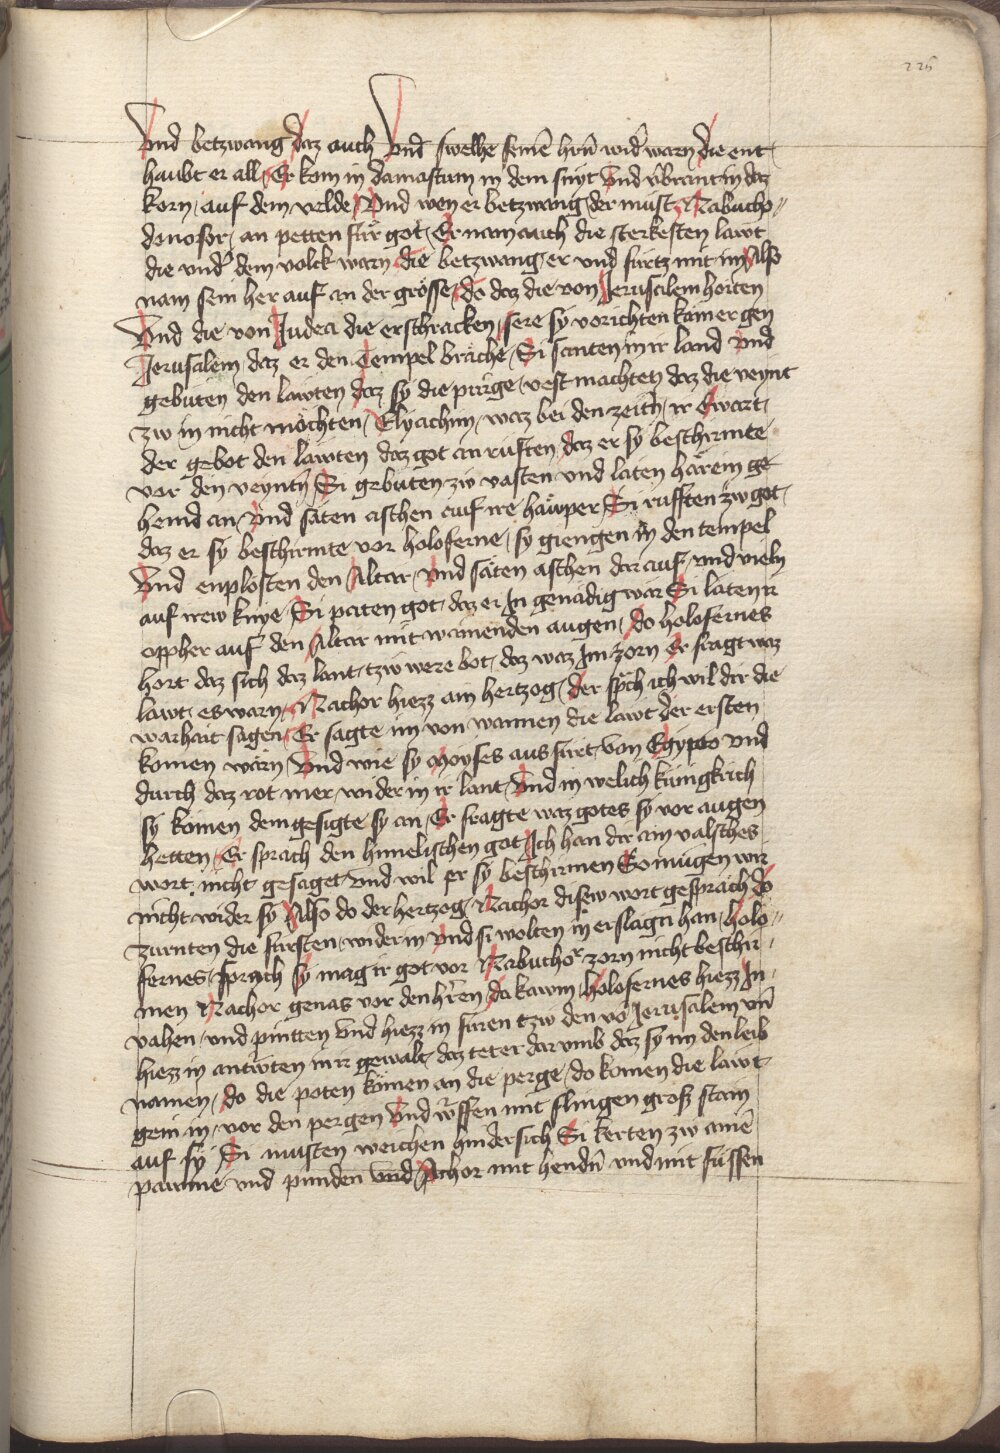 225
Und betzwang daz auch Und swelhe seinē hrn̄ wid̄ warn die ent
haubt er all Er kom in damascum in dem snyt Und v̈brant in daz
korn auf dem velde Und wen er betzwang der must Nabucho
donosor an petten für got Er nam auch die sterkesten lawt
die vnd̄ dem volck warn die betzwang er vnd fürtz mit im Also
nam sein her auf an der grösse do daz die von Jerusalem horten
Und die von Judea die erschracken sere sy vorichten käm er gen
Jerusalem daz er den Tempel bräche Si santen in ir land vnd
gebuten den lawten daz sy die pürge vest machten daz die veynt
zw in nicht möchten Elyachim waz bei den zeith ir Ewart
der gebot den lawten daz got an ruften daz er sy beschirmte
vor den veyntn̄ Si gebuten zw vasten vnd laten härein ge
hemd an Vnd säten aschen auf ire häwper Si rufften zw got
daz er sy beschirmte vor holoferne sy giengen in den tempel
Und enplosten den Altar Vnd säten aschen dar auf vnd vieln
auf irew knye Si paten got daz er In genädig wär Si laten ir
oppher auf den Altar mit wainenden augen do holofernes
hort daz sich daz lant tzw were bot daz waz Im zorn Er fragt waz
lawt es warn Nachor hiezz ain hertzog der sp̄ch ich wil dir die
warhait sagen Er sagte im von wannen die lawt der ersten
komen wärn Vnd wie sy Moyses aus fürt von Egypto vnd
durch daz rot mer wider in ir lant Vnd in welich küngkrich
sy komen dem gesigte sy an Er fragte waz gotes sy vor augen
hetten Er sprach den himelischen got Ich han dir ain valsches
wort nicht gesaget vnd wil er sy beschirmen So mügen wir
nicht wider sy Also do der hertzog Nachor disew wort gesprach do
zurnten die fürsten wider in Vnd si wolten in erslagn̄ han holo
fernes sprach sy mag ir got vor Nabuchor zorn nicht beschir
men Nachor genas vor den hr̄ren da kawm holofernes hiezz In
vahen vnd pintten vnd hiezz in füren tzw den vō Jerusalem vn̄
hiezz in antw̄ten in ir gewalt daz tet er dar vmb daz sy im den leib
namen do die poten kömen an die perge do komen die lawt
gein in vor den pergen Vnd w̄rffen mit slingen groß stain
auf sy Si musten weichen hindersich Si kerten zw ainē
pawme vnd punden vnd Achor mit hendn̄ vnd mit füssen